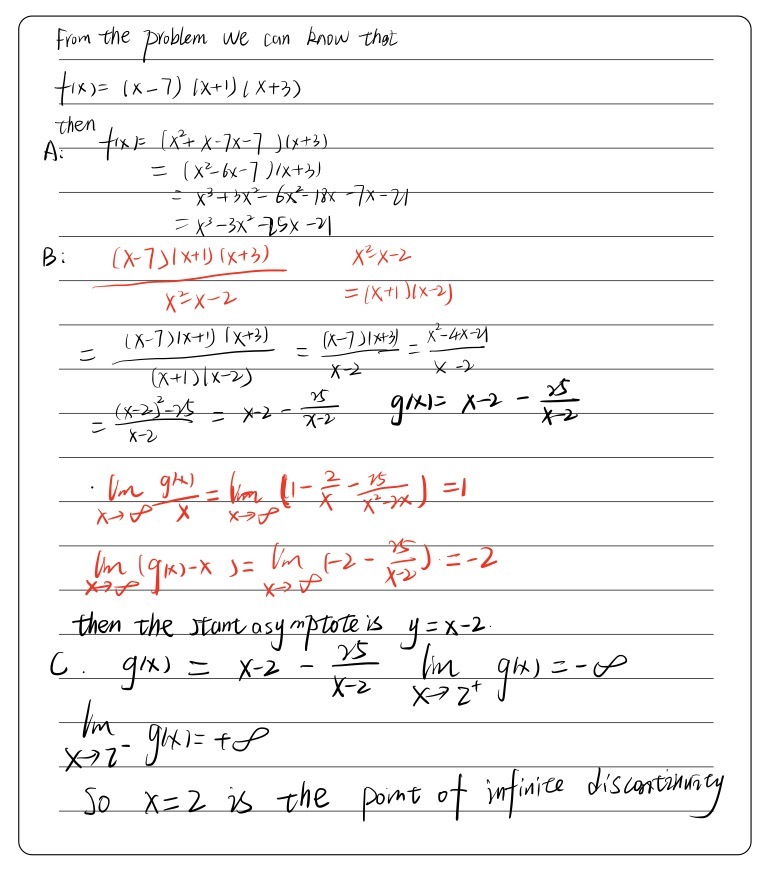 From the problem we can know that
f(x)= (x-7) (x+1) (x+3)
then
A: f(x)= (x²+x-7x-7)(x+3)
= (x²-6x-7)(x+3)
= x³+3x²-6x²-18x-7x-21
= x³-3x²-25x-21
B: (x-7)(x+1)(x+3) / x²-x-2    x²-x-2
=(x+1)(x-2)
= (x-7)(x+1)(x+3) / (x+1)(x-2) = (x-7)(x+3) / x-2 = x²-4x-21 / x-2
= (x-2)²-25 / x-2 = x-2 - 25/x-2    g(x)= x-2 - 25/x-2
· lim x→∞ g(x)/x = lim x→∞ (1 - 2/x - 25/x²-2x) = 1
lim x→∞ (g(x)-x) = lim x→∞ (-2 - 25/x-2) = -2
then the slant asymptote is y=x-2.
C. g(x) = x-2 - 25/x-2    lim x→2⁺ g(x) = -∞
lim x→2⁻ g(x) = +∞
So x=2 is the point of infinite discontinuity